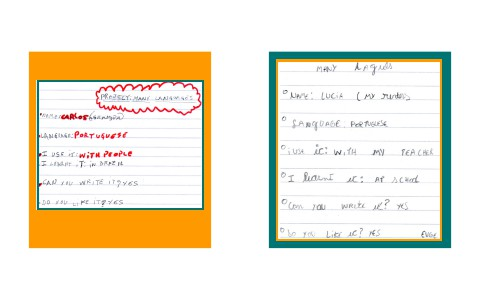 PROJECT: MANY LANGUAGES
NAME: CARLOS
LANGUAGE: PORTUGUESE
I USE IT: WITH PEOPLE
I LEARNT IT IN BRAZIL
CAN YOU WRITE IT? YES
DO YOU LIKE IT? YES
MANY
NAME: LUCIA (MY
LANGUAGE: PORTUGUESE
I USE IT: WITH MY TEACHER
I learnt it: AT SCHOOL
Can you write it? YES
Do you like it? YES